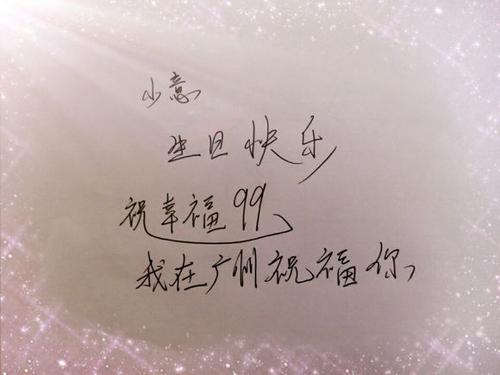 小意
生日快乐
祝幸福99、
我在广州祝福你、